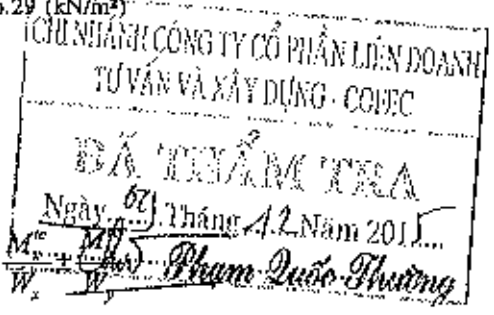 .29 (kN/m²)
CHI NHÁNH CÔNG TY CỔ PHẦN LIÊN DOANH
TƯ VẤN VÀ XÂY DỰNG - COFEC
ĐÃ THẨM TRA
Ngày Tháng 12 Năm 201
Phạm Quốc Thường